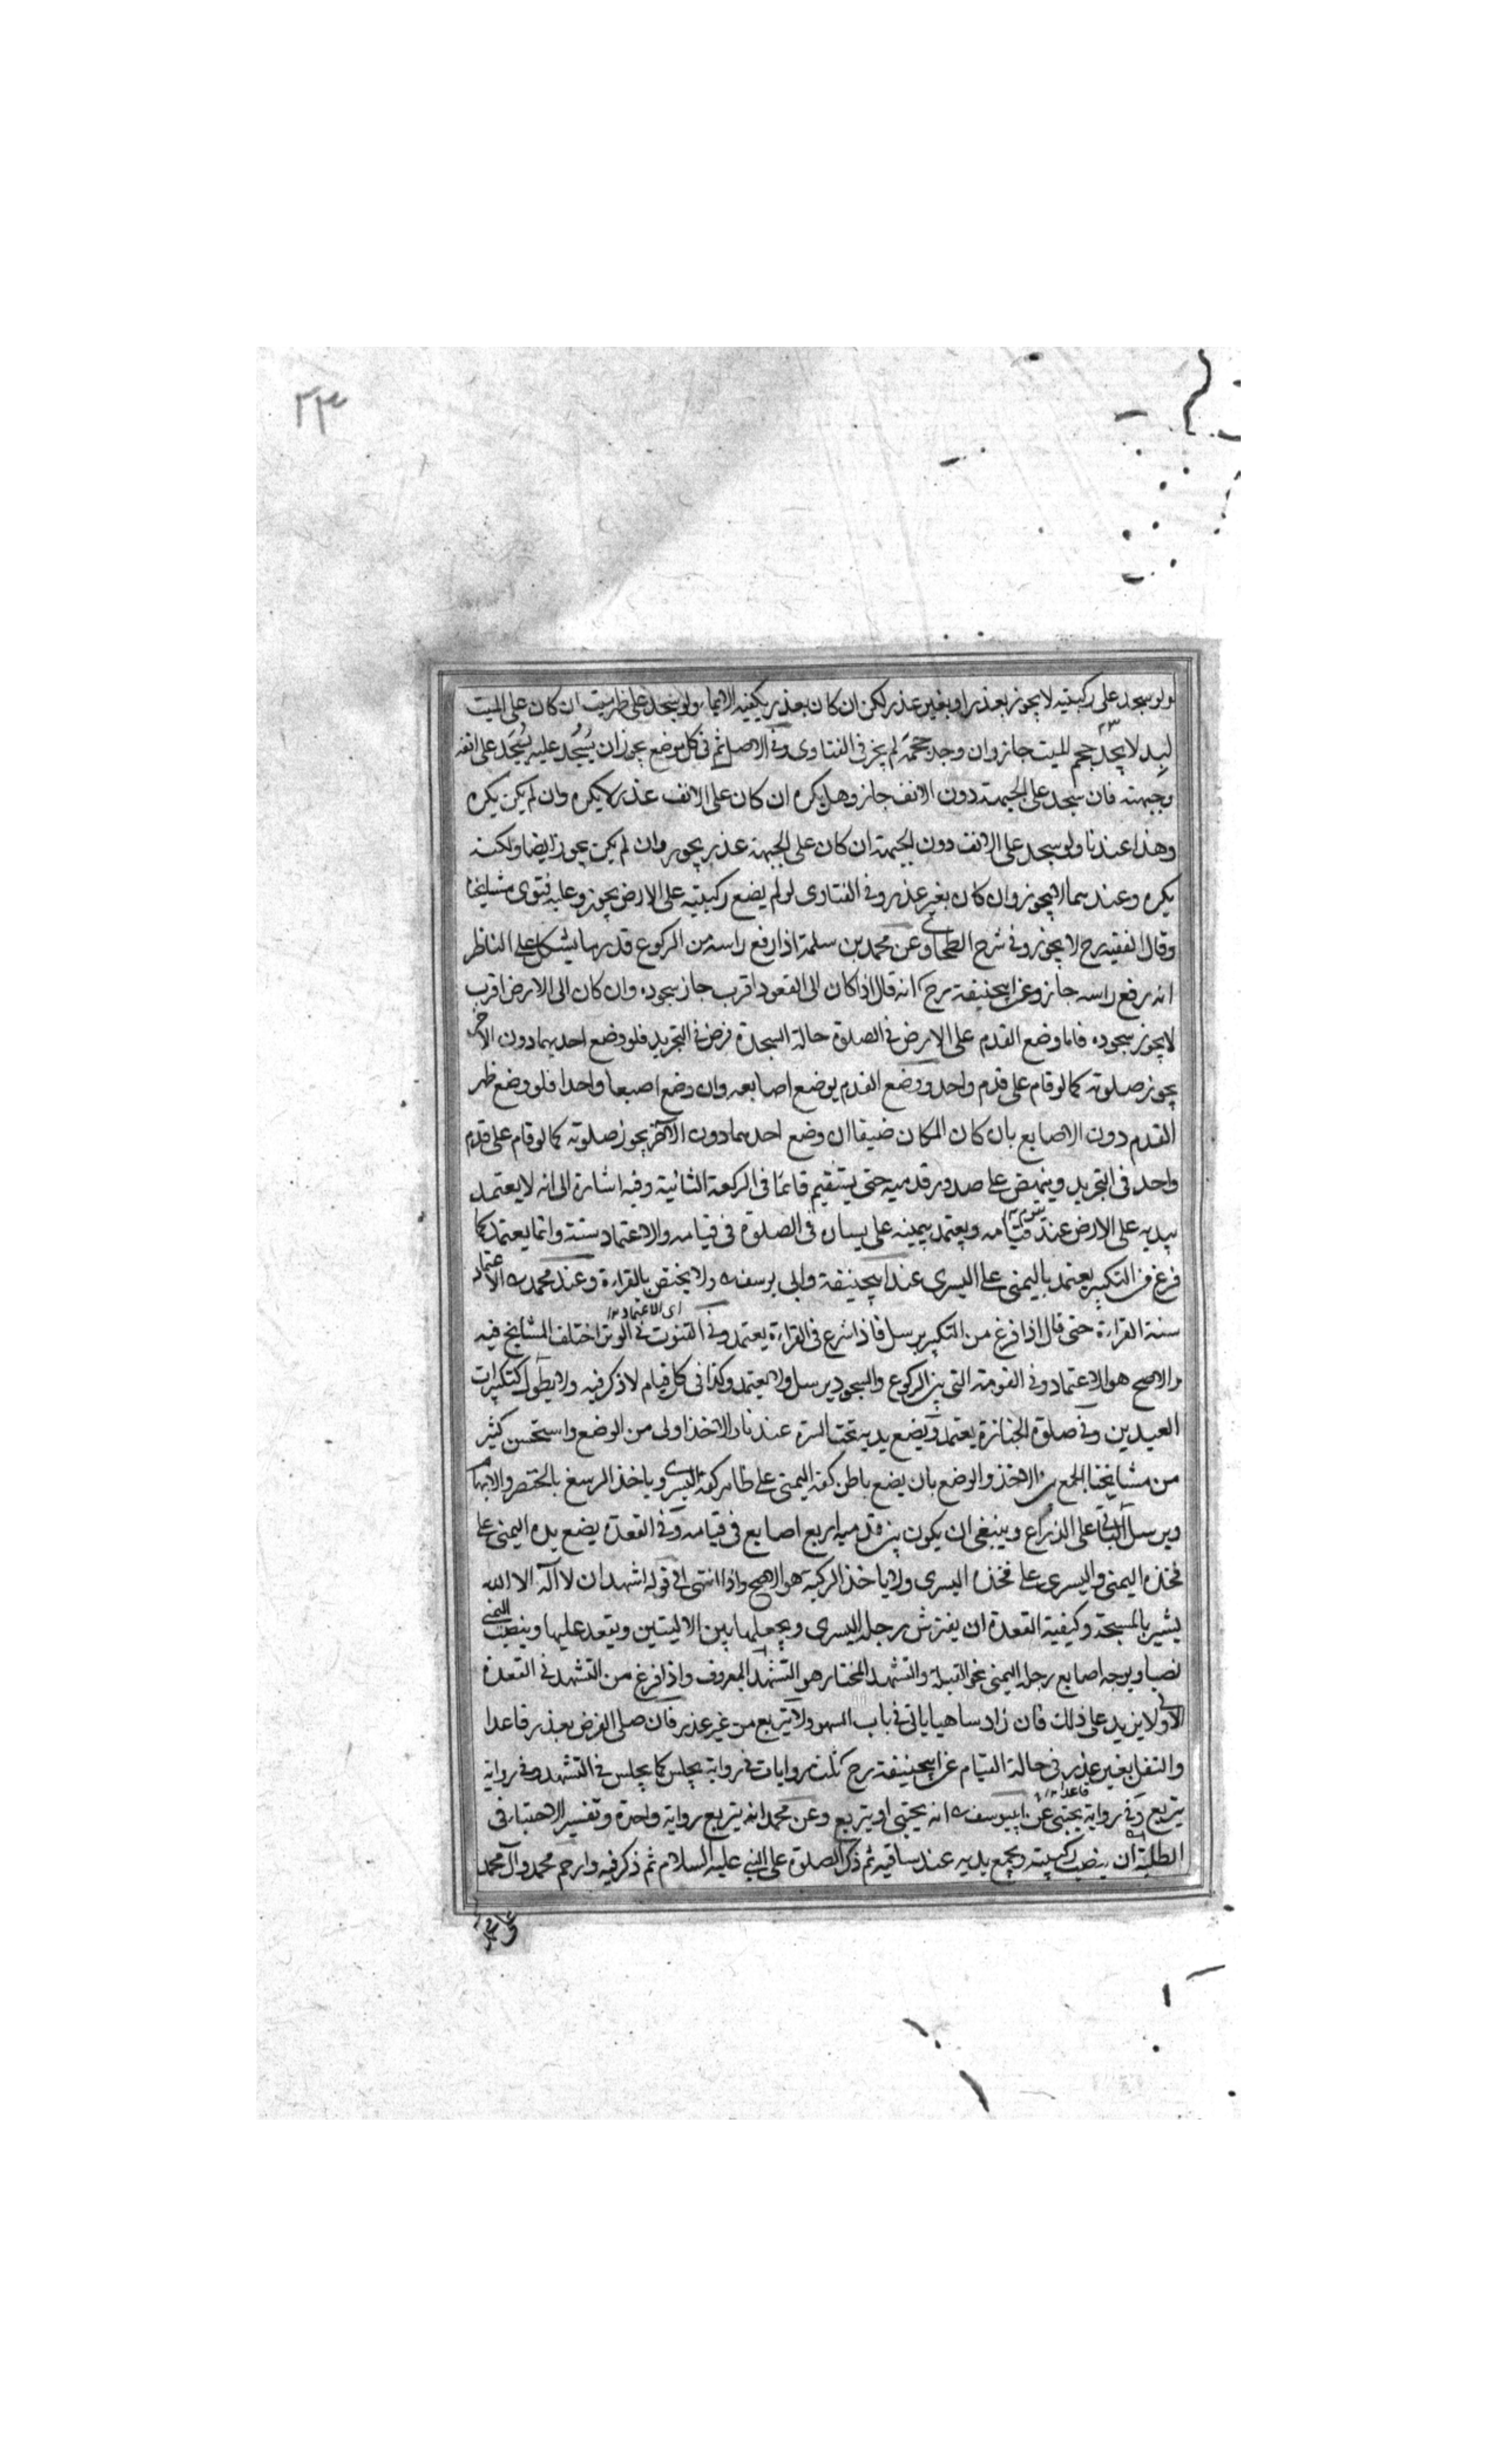 ٢٣
ولو سجد على ركبتيه لا يجوز بعذر او بغير عذر لكن ان كان بعذر يكفيه الايماء ولو سجد على ظهر ميت ان كان على الميت
لبد لا يجد حجم الميت جاز وان وجد حجمه لم يجز في الفتاوى وفي الاصل ثم في كل موضع يجوز ان يُسْجد عليه يُسْجد على انفه
وجبهته فان سجد على الجبهة دون الانف جاز وهل يكره ان كان على الانف عذر لا يكره وان لم يكن يكره
وهذا عندنا ولو سجد على الانف دون الجبهة ان كان على الجبهة عذر يجوز وان لم يكن يجوز ايضا ولكنه
يكره وعندهما لا يجوز وان كان بغير عذر وفي الفتاوى لو لم يضع ركبتيه على الارض يجوز وعليه فتوى مشايخنا
وقال الفقيه رح لا يجوز وفي شرح الطحاوي وعن محمد بن سلمة اذا رفع راسه من الركوع قدر ما يشكل على الناظر
انه رفع راسه جاز وعن ابيحنيفة رح انه قال اذا كان الى القعود اقرب جاز سجوده وان كان الى الارض اقرب
لا يجوز سجوده فاما وضع القدم على الارض في الصلوة حالة السجدة فرض في التجريد فلو وضع احديهما دون الاخر
يجوز صلوته كما لو قام على قدم واحد ووضع القدم بوضع اصابعه وان وضع اصبعا واحدا فلو وضع ظهر
القدم دون الاصابع بان كان المكان ضيقا ان وضع احدهما دون الاخر يجوز صلوته كما لو قام على قدم
واحد في التجريد وينهض على صدور قدميه حتى يستقيم قائما في الركعة الثانية وفيه اشارة الى انه لا يعتمد
بيديه على الارض عند قيامه ويعتمد بيمينه على يساره في الصلوة في قيامه والاعتماد سنة وانما يعتمد كما
فرغ من التكبير يعتمد باليمنى على اليسرى عند ابيحنيفة وابي يوسف ولا يختص بالقراءة وعند محمد الاعتماد
اى الاعتماد ١٢
سنة القراءة حتى قال اذا فرغ من التكبير يرسل فاذا شرع في القراءة يعتمد وفي القنوت في الوتر اختلف المشايخ فيه
والاصح هو الاعتماد وفي القومة التي بين الركوع والسجود يرسل ولا يعتمد وكذا في كل قيام لا ذكر فيه ولا يطول كتكبيرات
العيدين وفي صلوة الجنازة يعتمد ويضع يديه تحت السرة عندنا والاخذ اولى من الوضع واستحسن كثير
من مشايخنا الجمع بين الاخذ والوضع بان يضع باطن كفه اليمنى على ظاهر كفه اليسرى وياخذ الرسغ بالخنصر والابهام
ويرسل الباقي على الذراع وينبغي ان يكون بين قدميه اربع اصابع في قيامه وفي القعدة يضع يده اليمنى على
فخذه اليمنى واليسرى على فخذه اليسرى ولا ياخذ الركبة هو الاصح واذا انتهى الى قوله اشهد ان لا اله الا الله
يشير بالمسبحة وكيفية القعدة ان يفترش رجله اليسرى ويجعلها بين الاليتين ويقعد عليها وينصب اليمنى
نصبا ويوجه اصابع رجله اليمنى نحو القبلة والتشهد المختار هو التشهد المعروف واذا فرغ من التشهد في القعدة
الاولى لا يزيد على ذلك فان زاد ساهيا ياتي في باب السهو ولا يتربع من غير عذر فان صلى الفرض بعذر قاعدا
والنفل بغير عذر في حالة القيام عن ابيحنيفة رح ثلث روايات في رواية يجلس كما يجلس في التشهد وفي رواية
قاعدا ١٢
يتربع وفي رواية يحتبى عن ابييوسف انه يحتبى او يتربع وعن محمد انه يتربع رواية واحدة وتفسير الاحتباء في
الطلبة ان ينصب ركبتيه ويجمع يديه عند ساقيه ثم ذكر الصلوة على النبي عليه السلام ثم ذكر فيه وارحم محمد وآل محمد